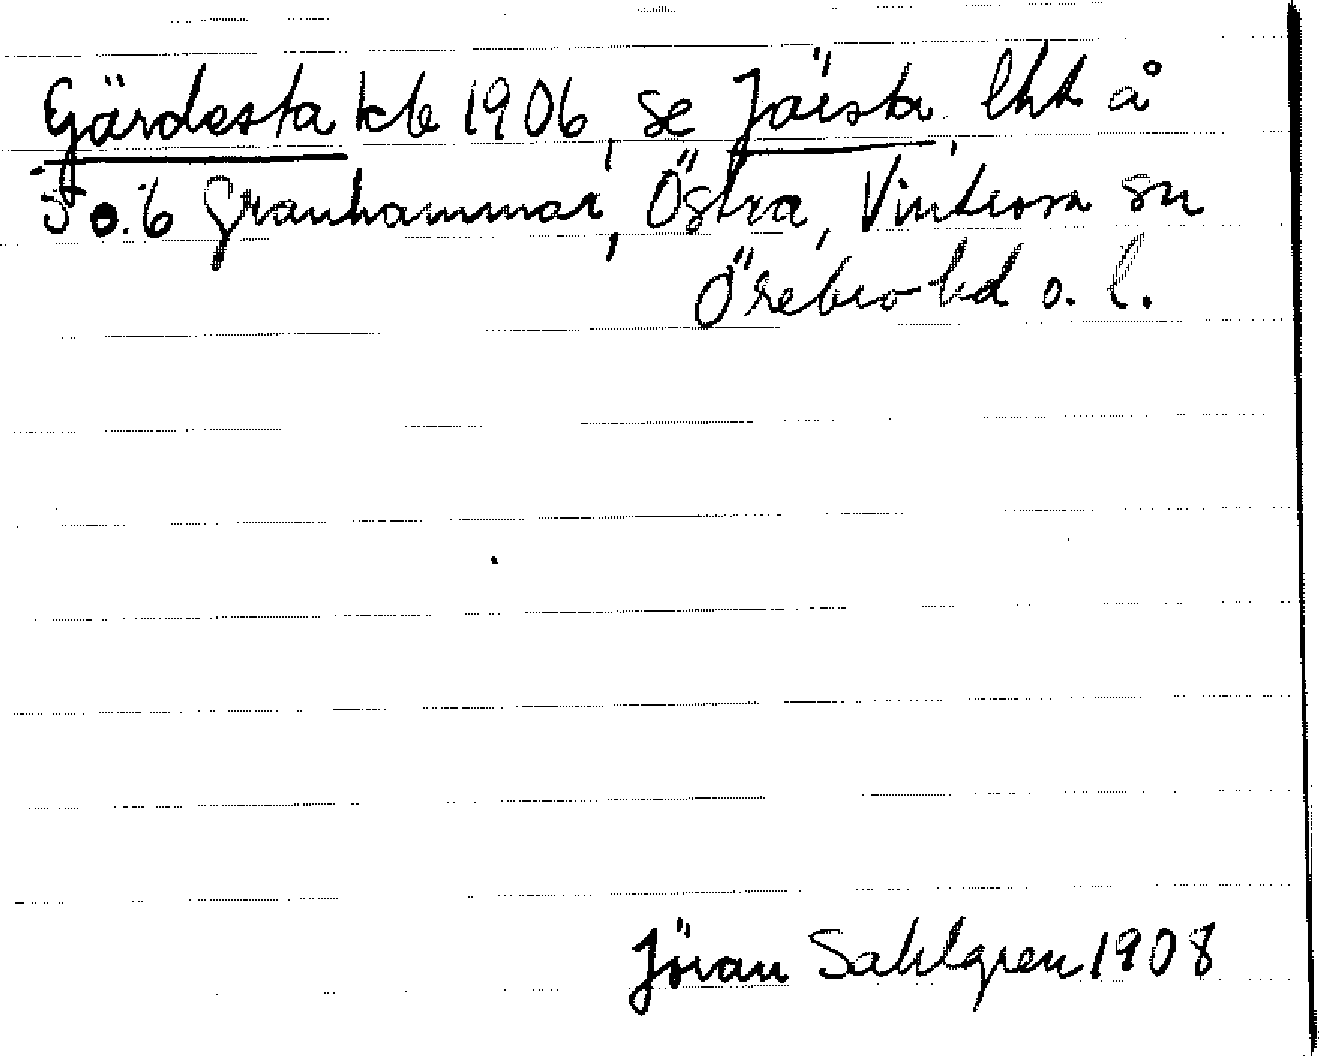 Gärdesta kb 1906, se Järsta. lht å
5 o. 6 Granhammar, Östra, Vintrosa sn
Örebro hd o. l.
Jöran Sahlgren 1908